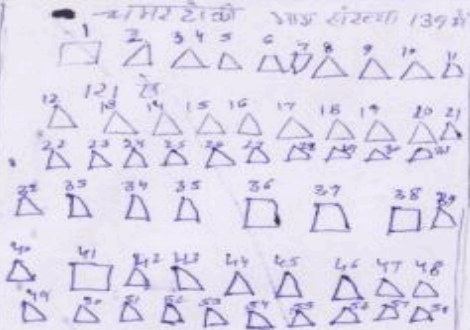 चमार टोली भाग संख्या 139 में
1 2 3 4 5 6 7 8 9 10 11
121 है
12 13 14 15 16 17 18 19 20 21
22 23 24 25 26 27 28 29 30 31
32 33 34 35 36 37 38 39
40 41 42 43 44 45 46 47 48
49 50 51 52 53 54 55 56 57 58